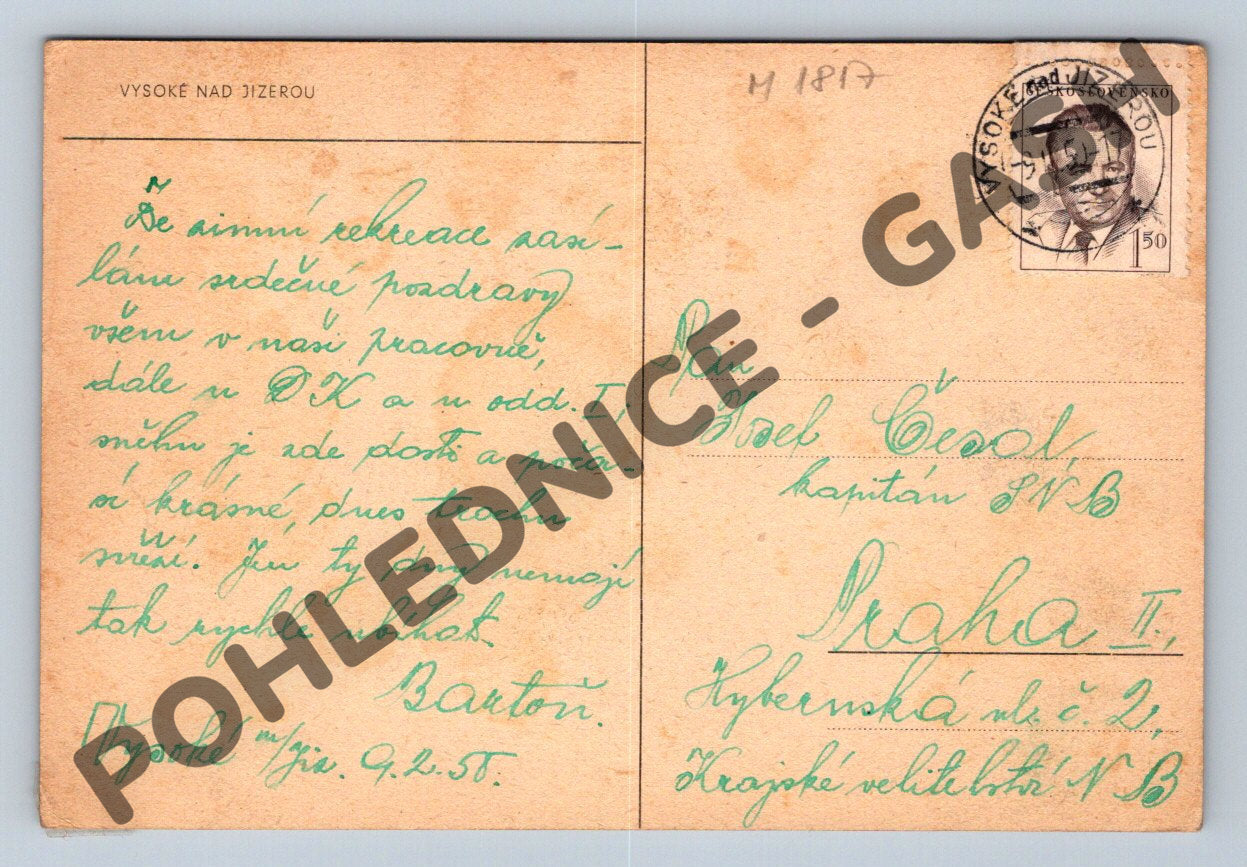 VYSOKÉ NAD JIZEROU
M 1817
VYSOKÉ nad JIZEROU
ČESKOSLOVENSKO
1 50
Ze zimní rekreace zasí-
lám srdečné pozdravy
všem v naší pracovně,
dále u OK a u odd. I.
sněhu je zde dosti a poča-
sí krásné, dnes trochu
svěží. Jen ty dny nemají
tak rychle
Bartoň.
Vysoké n/Jiz. 9.2.50.
Pan
Josef Česal,
kapitán SNB
Praha II.,
Hybernská ul. č. 2,
Krajské velitelství NB
POHLEDNICE - GASH